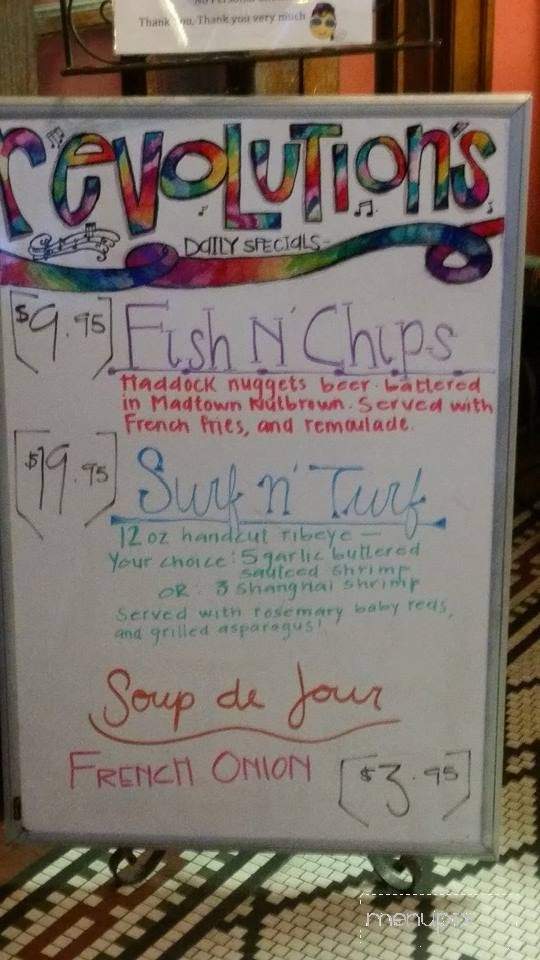 Thank you, Thank you very much
Revolution's
DAILY SPECIALS-
$9.95
Fish N' Chips
Haddock nuggets beer battered
in Madtown Nutbrown. Served with
French fries, and remoulade.
$19.95
Surf n' Turf
12 oz handcut ribeye —
Your choice: 5 garlic buttered
sauteed shrimp
OR: 3 Shanghai shrimp
Served with rosemary baby reds,
and grilled asparagus!
Soup de Jour
FRENCH ONION
$3.95
menupix